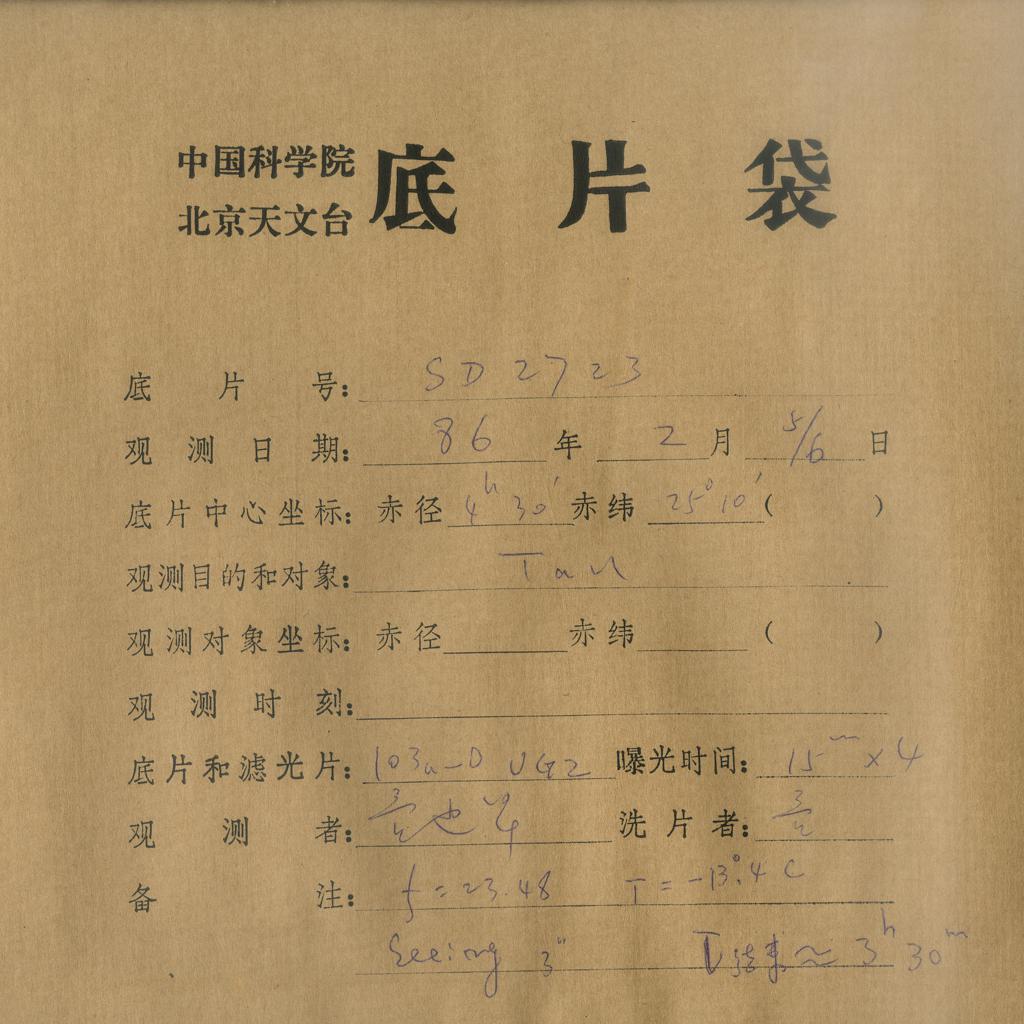 中国科学院
北京天文台
底片袋
底片号: SD 2723
观测日期: 86 年 2 月 5/6 日
底片中心坐标: 赤径 4h 30' 赤纬 25° 10' ( )
观测目的和对象: Tau
观测对象坐标: 赤径 赤纬 ( )
观测时刻:
底片和滤光片: 103a-D UG2 曝光时间: 15m × 4
观测者: 洗片者:
备注: f = 23.48 T = -13°.4 C
Seeing 3" T结束 ≈ 3h 30m